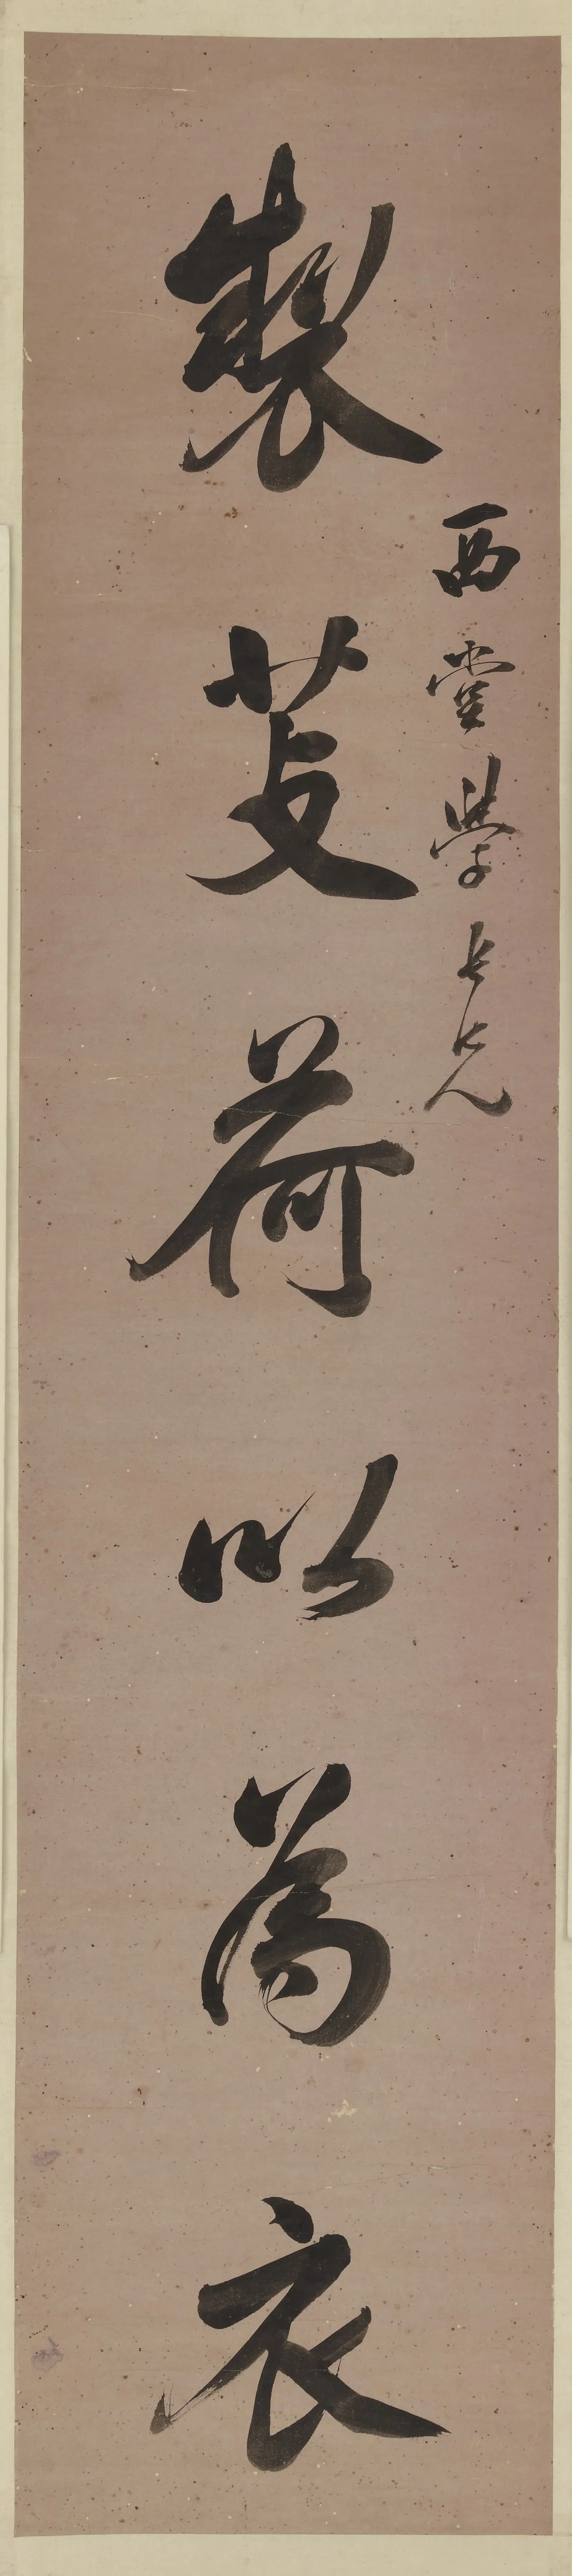 製芰荷以為衣
西堂學長兄